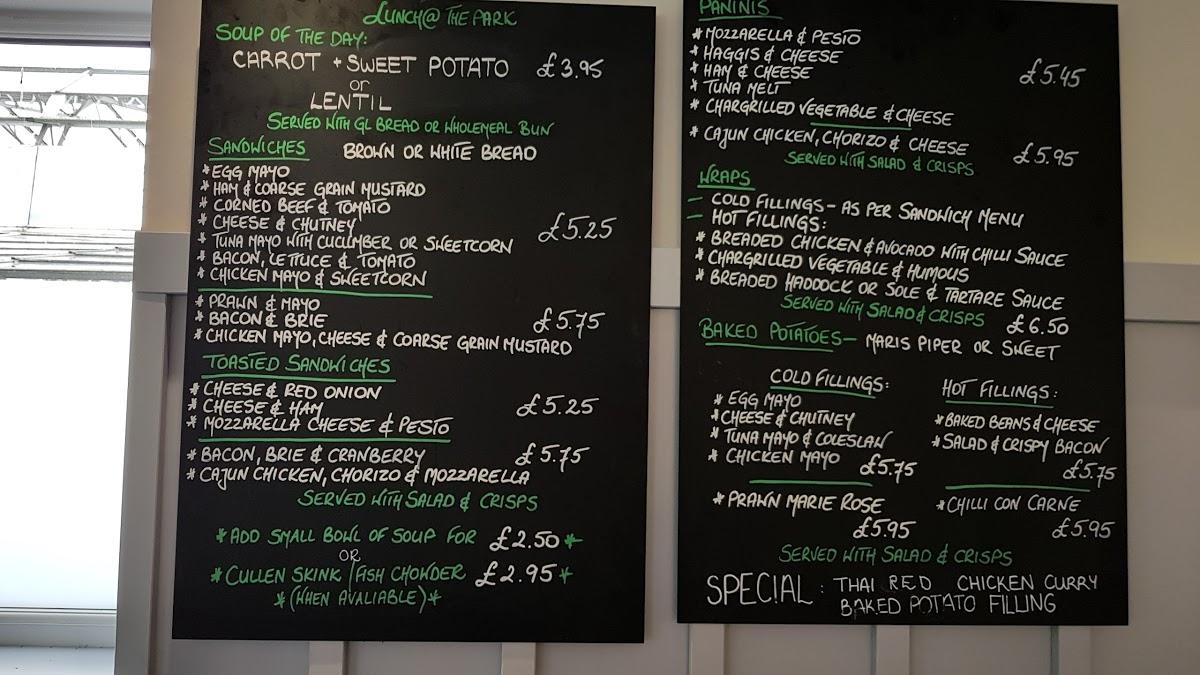 LUNCH@ THE PARK
SOUP OF THE DAY:
CARROT + SWEET POTATO £3.95
or
LENTIL
SERVED WITH GL BREAD OR WHOLEMEAL BUN
SANDWICHES BROWN OR WHITE BREAD
* EGG MAYO
* HAM & COARSE GRAIN MUSTARD
* CORNED BEEF & TOMATO
* CHEESE & CHUTNEY £5.25
* TUNA MAYO WITH CUCUMBER OR SWEETCORN
* BACON, LETTUCE & TOMATO
* CHICKEN MAYO & SWEETCORN
* PRAWN & MAYO
* BACON & BRIE £5.75
* CHICKEN MAYO, CHEESE & COARSE GRAIN MUSTARD
TOASTED SANDWICHES
* CHEESE & RED ONION
* CHEESE & HAM £5.25
* MOZZARELLA CHEESE & PESTO
* BACON, BRIE & CRANBERRY £5.75
* CAJUN CHICKEN, CHORIZO & MOZZARELLA
SERVED WITH SALAD & CRISPS
* ADD SMALL BOWL OF SOUP FOR £2.50 *
OR
* CULLEN SKINK / FISH CHOWDER £2.95 *
* (WHEN AVALIABLE) *
PANINIS
* MOZZARELLA & PESTO
* HAGGIS & CHEESE
* HAM & CHEESE £5.45
* TUNA MELT
* CHARGRILLED VEGETABLE & CHEESE
* CAJUN CHICKEN, CHORIZO & CHEESE £5.95
SERVED WITH SALAD & CRISPS
WRAPS
- COLD FILLINGS - AS PER SANDWICH MENU
- HOT FILLINGS:
* BREADED CHICKEN & AVOCADO WITH CHILLI SAUCE
* CHARGRILLED VEGETABLE & HUMOUS
* BREADED HADDOCK OR SOLE & TARTARE SAUCE
SERVED WITH SALAD & CRISPS £6.50
BAKED POTATOES - MARIS PIPER OR SWEET
COLD FILLINGS:
* EGG MAYO
* CHEESE & CHUTNEY
* TUNA MAYO & COLESLAW
* CHICKEN MAYO £5.75
* PRAWN MARIE ROSE
£5.95
HOT FILLINGS:
* BAKED BEANS & CHEESE
* SALAD & CRISPY BACON
£5.75
* CHILLI CON CARNE
£5.95
SERVED WITH SALAD & CRISPS
SPECIAL : THAI RED CHICKEN CURRY
BAKED POTATO FILLING